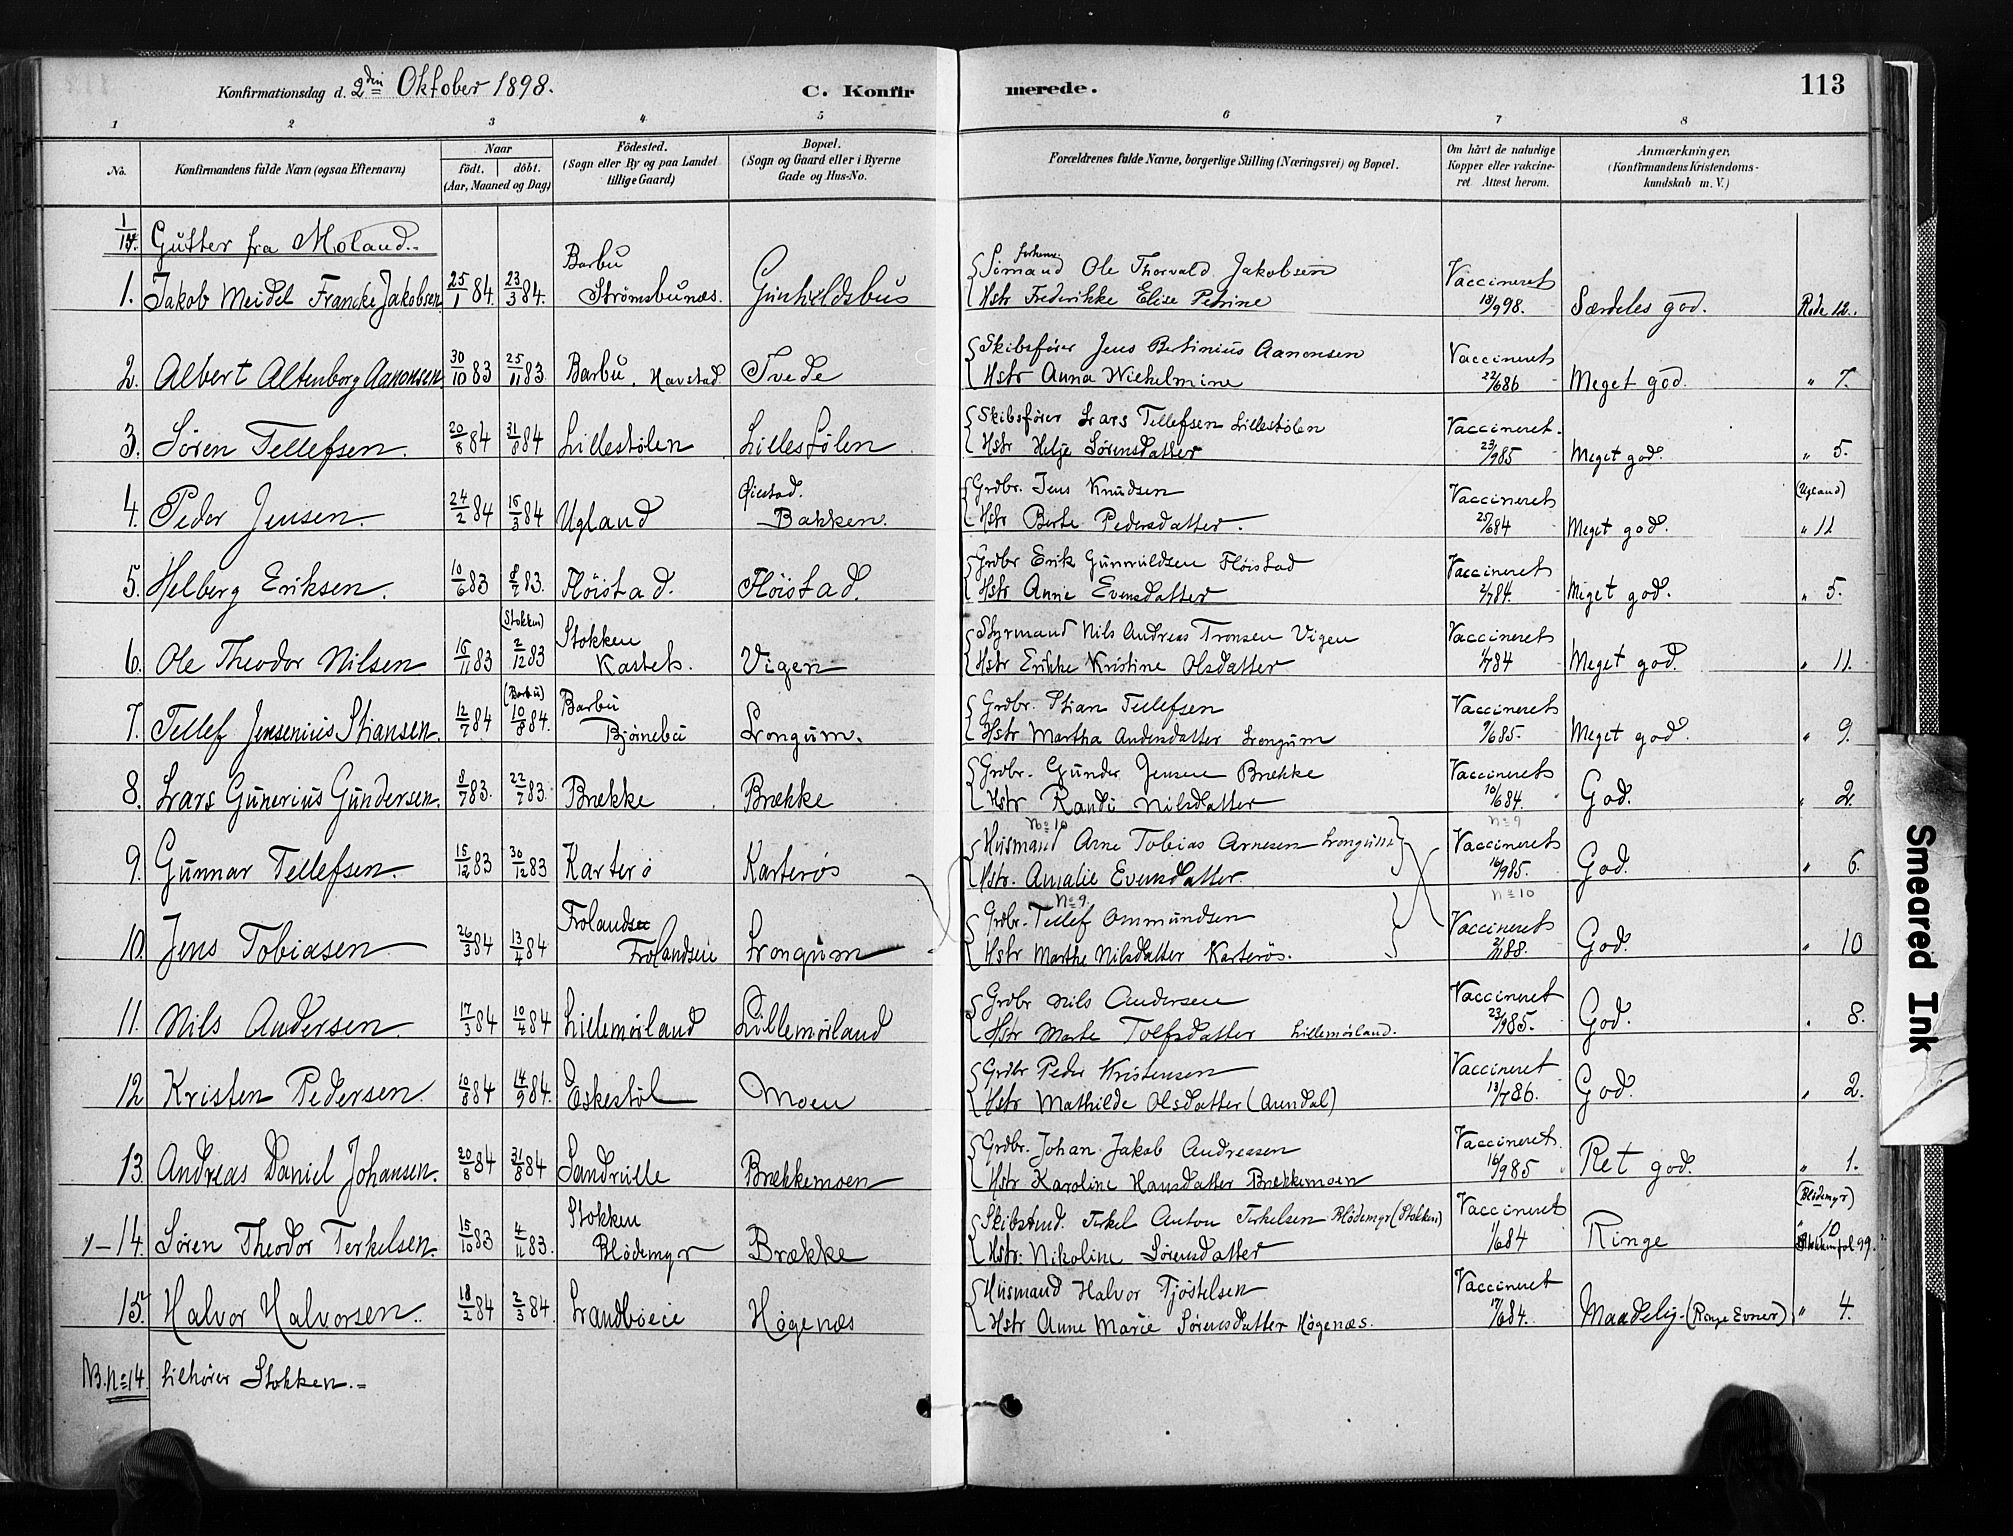 Konfirmationsdag d. 2den Oktober 1898. C. Konfir merede. 113
1 2 3 4 5 6 7 8
No. Konfirmandens fulde Navn (ogsaa Efternavn) Naar født. døbt. (Aar, Maaned og Dag) Fødested. (Sogn eller By og paa Landet tillige Gaard) Bopæl. (Sogn og Gaard eller i Byerne Gade og Hus-No.) Forældrenes fulde Navne, borgerlige Stilling (Næringsvei) og Bopæl. Om havt de naturlige Kopper eller vaccineret Attest herom. Anmærkninger, (Konfirmandens Kristendomskundskab m. V.)
Gutter fra Moland.
1. Jakob Meidel Francke Jakobsen 25/1 84. 23/3 84. Barbu Strømsbunæs. Gunhildsbu forhenv. Sømand Ole Thorvald Jakobsen Hstr Frederikke Elise Petrine Vaccineret 18/9 98. Særdeles god. Rode 12.
2. Albert Altenborg Aanonsen 30/10 83 25/11 83 Barbu, Havstad Tvede Skibsfører Jens Bertinius Aanonsen Hstr Anna Wilhelmine Vaccineret 22/6 86 Meget god. " 7.
3. Søren Tellefsen. 20/8 84 31/8 84 Lillestølen Lillestølen Skibsfører Lars Tellefsen Lillestølen Hstr Helje Sørensdatter Vaccineret 23/9 85 Meget god. " 5.
4. Peder Jensen. 24/2 84 16/3 84 Ugland Øiestad. Bakken. Grdbr. Jens Knudsen Hstr Berte Pedersdatter. Vaccineret 25/6 84 Meget god. (Ugland) " 11
5. Helberg Eriksen. 10/6 83 8/7 83. Fløistad. Fløistad. Grdbr Erik Gunvuldsen Fløistad Hstr Anne Evensdatter Vaccineret 2/7 84. Meget god. " 5.
6. Ole Theodor Nilsen 16/11 83 (Stokken) 2/12 83 Stokken Kastet. Vigen Styrmand Nils Andreas Tronsen Vigen Hstr Erikke Kristine Olsdatter Vaccineret 1/7 84 Meget god. " 11.
7. Tellef Jensenius Stiansen. 12/7 84 (Barbu) 10/8 84. Barbu Bjørnebu Longum. Grdbr. Stian Tellefsen Hstr Martha Andersdatter Longum Vaccineret 9/6 85. Meget god. " 9.
8. Lars Gunerius Gundersen. 8/7 83. 22/7 83. Brække Brække Grdbr. Gunder Jensen Brække Hstr Randi Nilsdatter Vaccineret 10/6 84. God. " 2.
9. Gunnar Tellefsen. 15/12 83 30/12 83 Karterø Karterøs No 10 Husmand Arne Tobias Arnesen Longum Hstr. Amalie Evensdatter. No 9 Vaccineret 16/9 85. God. " 6.
10. Jens Tobiasen 26/3 84 13/4 84 Frolandseie Longum No 9. Grdbr. Tellef Ommundsen Hstr Marthe Nilsdatter Karterøs. No 10 Vaccineret 88. God. " 10
11. Nils Andersen 17/3 84 10/4 84 Lillemørland Lillemørland Grdbr Nils Andersen Hstr Marte Tolfsdatter Lillemørland. Vaccineret 23/9 85. God. " 8.
12 Kristen Pedersen 10/8 84 14/9 84. Eskestøl Moen Grdbr Peder Kristensen Hstr Mathilde Olsdatter (Arendal) Vaccineret 13/7 86. God. " 2.
13. Andreas Daniel Johansen. 20/8 84 31/8 84 Sandville Brækkemoen Grdbr. Johan Jakob Andreasen Hstr Karoline Hansdatter Brækkemoen Vaccineret 16/9 85 Ret god. " 1.
14. Søren Theodor Terkelsen. 15/10 83 4/11 83. Stokken Blødemyr Brække Terkel Anton Terkelsen Blødemyr (Stokken) Hstr. Nikoline Sørensdatter Vaccineret 1/6 84 Ringe (Blødemyr) " 10 Stokken fol 99.
15. Halvor Halvorsen. 18/2 84 2/3 84. Høgenæs Husmand Halvor Tjøstelsen Hstr Anne Marie Sørensdatter Høgenæs. Vaccineret 17/6 84. Maadelig (Ringe Evner) " 4.
NB. No 14. tilhører Stokken.
Smeared Ink